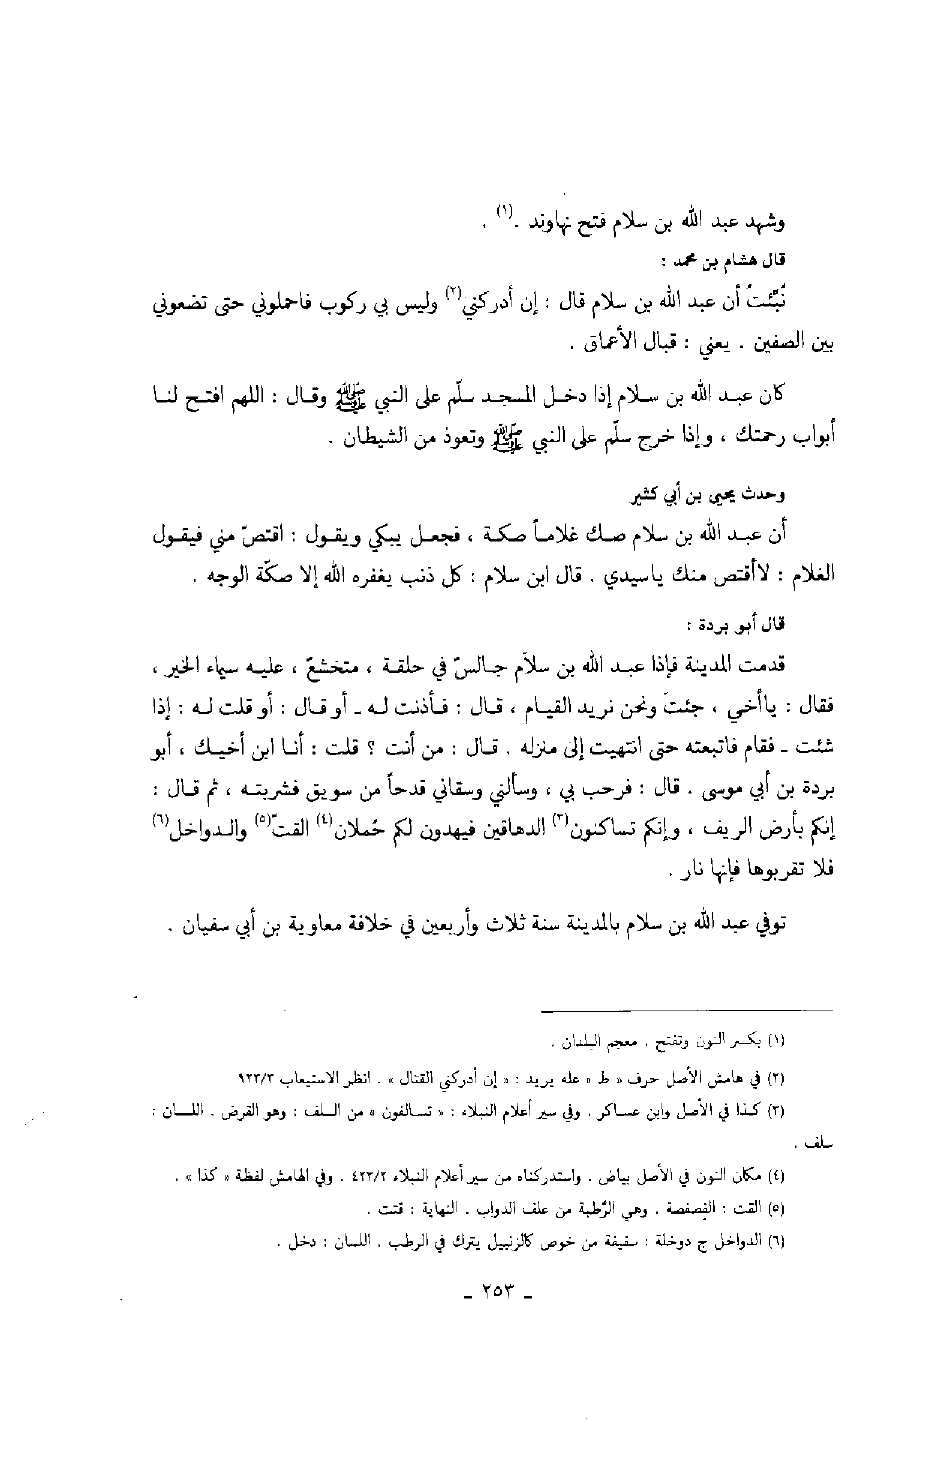 وشهد عبد الله بن سلام فتح نهاوند .(١) .
قال هشام بن محمد :
نُبِّئتُ أن عبد الله بن سلام قال : إن أدركني(٢) وليس بي ركوب فاحملوني حتى تضعوني
بين الصفين . يعني : قبال الأعماق .
كان عبد الله بن سلام إذا دخل المسجد سلّم على النبي ﷺ وقال : اللهم افتح لنا
أبواب رحمتك ، وإذا خرج سلّم على النبي ﷺ وتعوذ من الشيطان .
وحدث يحيى بن أبي كثير
أن عبد الله بن سلام صك غلاماً صكة ، فجعل يبكي ويقول : اقتصّ مني فيقول
الغلام : لاأقتص منك ياسيدي . قال ابن سلام : كل ذنب يغفره الله إلا صكّة الوجه .
قال أبو بردة :
قدمت المدينة فإذا عبد الله بن سلام جالسٌ في حلقة ، متخشعٌ ، عليه سيماء الخير ،
فقال : ياأخي ، جئتَ ونحن نريد القيام ، قال : فأذنت له ـ أو قال : أو قلت له : إذا
شئت ـ فقام فاتبعته حتى انتهيت إلى منزله . قال : من أنت ؟ قلت : أنا ابن أخيك ، أبو
بردة بن أبي موسى . قال : فرحب بي ، وسألني وسقاني قدحاً من سويق فشربته ، ثم قال :
إنكم بأرض الريف ، وإنكم تساكنون(٣) الدهاقين فيهدون لكم حُملان(٤) القتّ(٥) والدواخل(٦)
فلا تقربوها فإنها نار .
توفي عبد الله بن سلام بالمدينة سنة ثلاث وأربعين في خلافة معاوية بن أبي سفيان .
(١) بكسر النون وتفتح . معجم البلدان .
(٢) في هامش الأصل حرف « ط » عله يريد : « إن أدركني القتال » . انظر الاستيعاب ٩٢٣/٣
(٣) كذا في الأصل وابن عساكر . وفي سير أعلام النبلاء : « تسالفون » من السلف : وهو القرض . اللسان :
سلف .
(٤) مكان النون في الأصل بياض . واستدركناه من سير أعلام النبلاء ٤٢٣/٢ . وفي الهامش لفظة « كذا » .
(٥) القت : الفِصفصة . وهي الرَّطبة من علف الدواب . النهاية : قتت .
(٦) الدواخل ج دوخلة : سقيفة من خوص كالزنبيل يترك في الرطب . اللسان : دخل .
ـ ٢٥٣ ـ